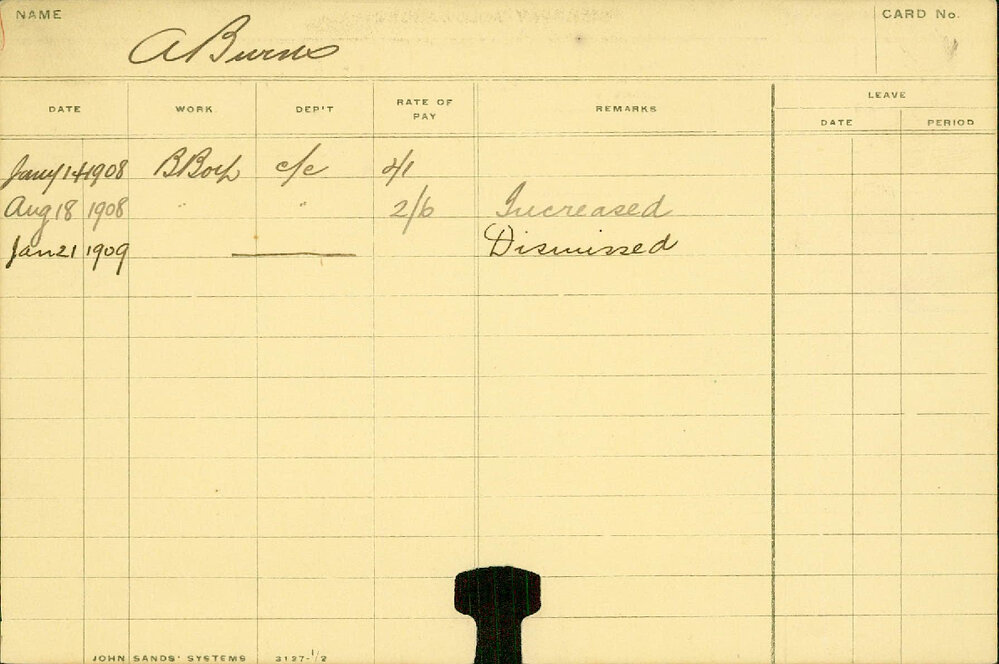 NAME
CARD No.
A Burns
DATE WORK DEP'T RATE OF PAY REMARKS LEAVE
DATE PERIOD
Jany 14 1908 B Boy c/c 2/1
Aug 18 1908 " " 2/6 Increased
Jan 21 1909 Dismissed
JOHN SANDS' SYSTEMS 3127-1/2